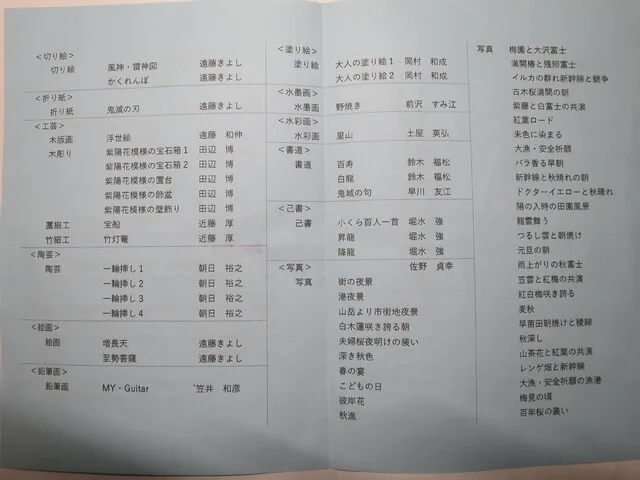 ＜切り絵＞
切り絵 風神・雷神図 遠藤きよし
かくれんぼ 遠藤きよし
＜折り紙＞
折り紙 鬼滅の刃 遠藤きよし
＜工芸＞
木版画 浮世絵 遠藤 和伸
木彫り 紫陽花模様の宝石箱1 田辺 博
紫陽花模様の宝石箱2 田辺 博
紫陽花模様の置台 田辺 博
紫陽花模様の飾盆 田辺 博
紫陽花模様の壁飾り 田辺 博
藁細工 宝船 近藤 厚
竹細工 竹灯篭 近藤 厚
＜陶芸＞
陶芸 一輪挿し1 朝日 裕之
一輪挿し2 朝日 裕之
一輪挿し3 朝日 裕之
一輪挿し4 朝日 裕之
＜絵画＞
絵画 増長天 遠藤きよし
至勢菩薩 遠藤きよし
＜鉛筆画＞
鉛筆画 MY・Guitar 笠井 和彦
＜塗り絵＞
塗り絵 大人の塗り絵1 岡村 和成
大人の塗り絵2 岡村 和成
＜水墨画＞
水墨画 野焼き 前沢 すみ江
＜水彩画＞
水彩画 里山 土屋 英弘
＜書道＞
書道 百寿 鈴木 福松
白龍 鈴木 福松
鬼城の句 早川 友江
＜己書＞
己書 小くら百人一首 堀水 強
昇龍 堀水 強
降龍 堀水 強
＜写真＞ 佐野 貞幸
写真 街の夜景
港夜景
山岳より市街地夜景
白木蓮咲き誇る朝
夫婦桜夜明けの装い
深き秋色
春の宴
こどもの日
彼岸花
秋進
写真 梅園と大沢富士
満開椿と残照富士
イルカの群れ新幹線と競争
古木桜満開の朝
紫藤と白富士の共演
紅葉ロード
朱色に染まる
大漁・安全祈願
バラ香る早朝
新幹線と秋晴れの朝
ドクターイエローと秋晴れ
陽の入時の田園風景
龍雲舞う
つるし雲と朝焼け
元旦の朝
雨上がりの秋富士
笠雲と紅梅の共演
紅白梅咲き誇る
麦秋
早苗田朝焼けと稜線
秋深し
山茶花と紅葉の共演
レンゲ畑と新幹線
大漁・安全祈願の漁港
梅見の頃
百年桜の装い